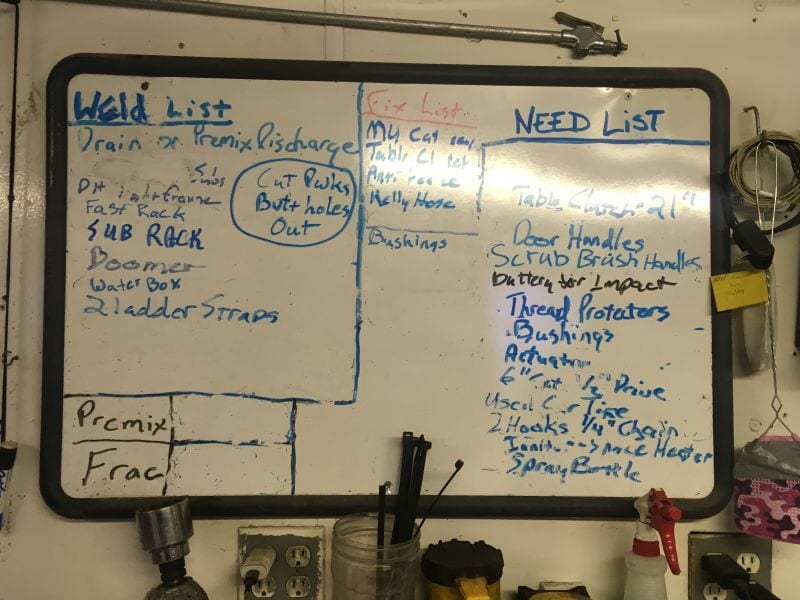 Weld List
Drain or Premix Discharge
Subs
DH Light Frame
Fast Rack
SUB RACK
Doomer
Water Box
2 ladder Straps
Cut Pwks
Butt holes
Out
Fix List
My Cat
Table Cl
Kelly Hose
Bushings
NEED LIST
Table Clutch 21"
Door Handles
Scrub Brush Handles
Battery for Impact
Thread Protectors
Bushings
Actuator
6" 1/2" Drive
Used
2 Hooks 1/4" Chain
Heater
Spray Bottle
Premix
Frac